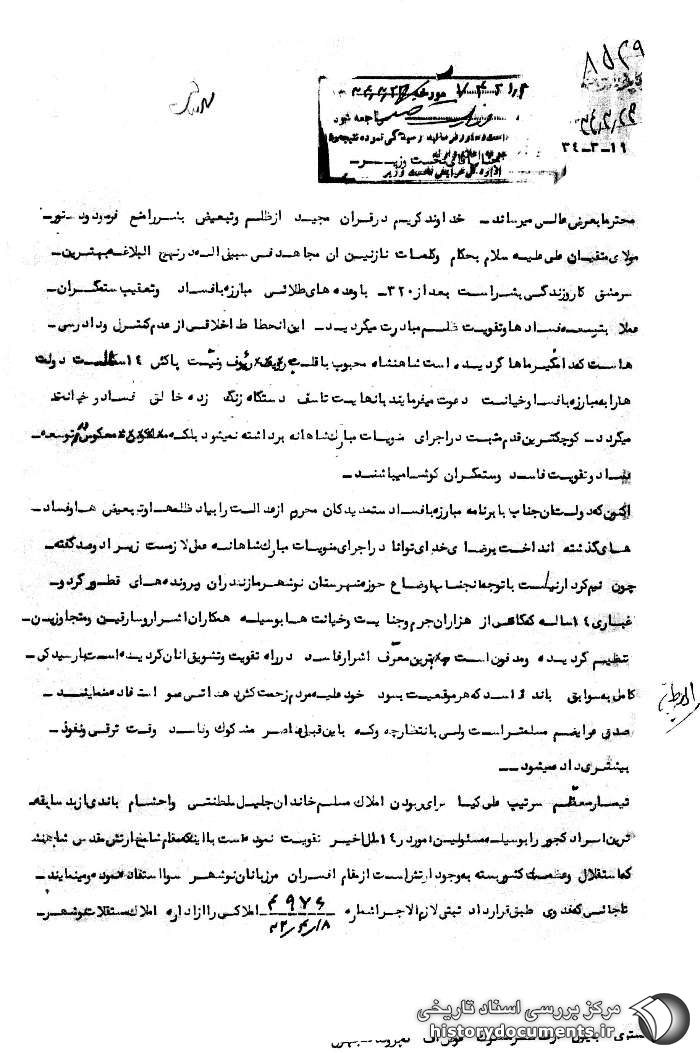 ۸۵۲۹
۳۴-۳-۱۱
مراجعه شود
جناب آقای نخست وزیر
اداره کل عرایض نخست وزیر
محترما بعرض عالی میرساند - خداوند کریم در قران مجید از ظلم و تبعیض بشر را منع فرمودود - نور -
مولای متقیان علی علیه سلام بحکام و کلمات نازنین ان مجاهد فی سبیل اله در نهج البلاغه بهترین -
سرمشق کار و زندگی بشر است بعد از ۳۲۰ - با وعده های طلائی مبارزه با فساد و تعقیب ستمگران -
عملا بتوسعه فساد ها و تقویت ظلم مبادرت میگردید - این انحطاط اخلاقی از عدم کنترل و دادرسی -
هاست که دامنگیر ماها گردیده است شاهنشاه محبوب با قلب رئوف و نیت پاکش ۱۴ سال است دولت
ها را به مبارزه با فساد و خیانت دعوت میفرمایند با نهایت تاسف دستگاه زنگ زده خالق فساد و خیانت
میگردد - کوچکترین قدم مثبت در اجرای منویات مبارک شاهانه برداشته نمیشود بلکه معکوس توسعه -
فساد و تقویت فاسد و ستمگران کوشا میباشند -
اکنون که دولت ان جناب با برنامه مبارزه با فساد ستمدیدگان محروم از عدالت را بیاد ظلمها و تبعیض ها و فساد -
های گذشته انداخت برضای خدای توانا در اجرای منویات مبارک شاهانه عملی لازمست زیرا دو صد گفته -
چون نیم کردار نیست با توجه انجناب باوضاع حوزه شهرستان نوشهر مازندران و پرونده های قطور گرد و -
غباری ۱۴ ساله که حاکی از هزاران جرم و جنایت و خیانت ها بوسیله همکاران اشرار و سارقین و متجاوزین -
تنظیم گردیده و مدفون است بهترین معرف اشرار فاسد در راه تقویت و تشویق انان گردیده است با رسیدگی -
کامل به سوابق باند فاسد که هر موقعیت بسود خود علیه مردم زحمت کش سو استفاده مینمایند -
صدق عرایضم مسلمتر است ولی با انتظار چه و که با این قبیل عناصر مشکوک و فاسد وقت ترقی و نفوذ -
بیشتری داده میشود --
تیمسار معظم سرتیپ علی کیا برای ربودن املاک مسلم خاندان جلیل سلطنتی و احشام باندی از بد سابقه -
ترین اسراد کجور را بوسیله مسئولین امور در ۱۴ سال اخیر تقویت نموده است با اینکه مقام شامخ ارتش مقدس شاهنشاهی
که استقلال و عظمت کشور بسته به وجود ارتش است از مقام افسران مرزبانان نوشهر سوا استفاده نموده و مینمایند -
تا جائی که فدوی طبق قرارداد ثبتی لازم الاجرا شماره ۴۹۷۶ املاکی را از اداره املاک مستقلات نوشهر -
مرکز بررسی اسناد تاریخی
historydocuments.ir